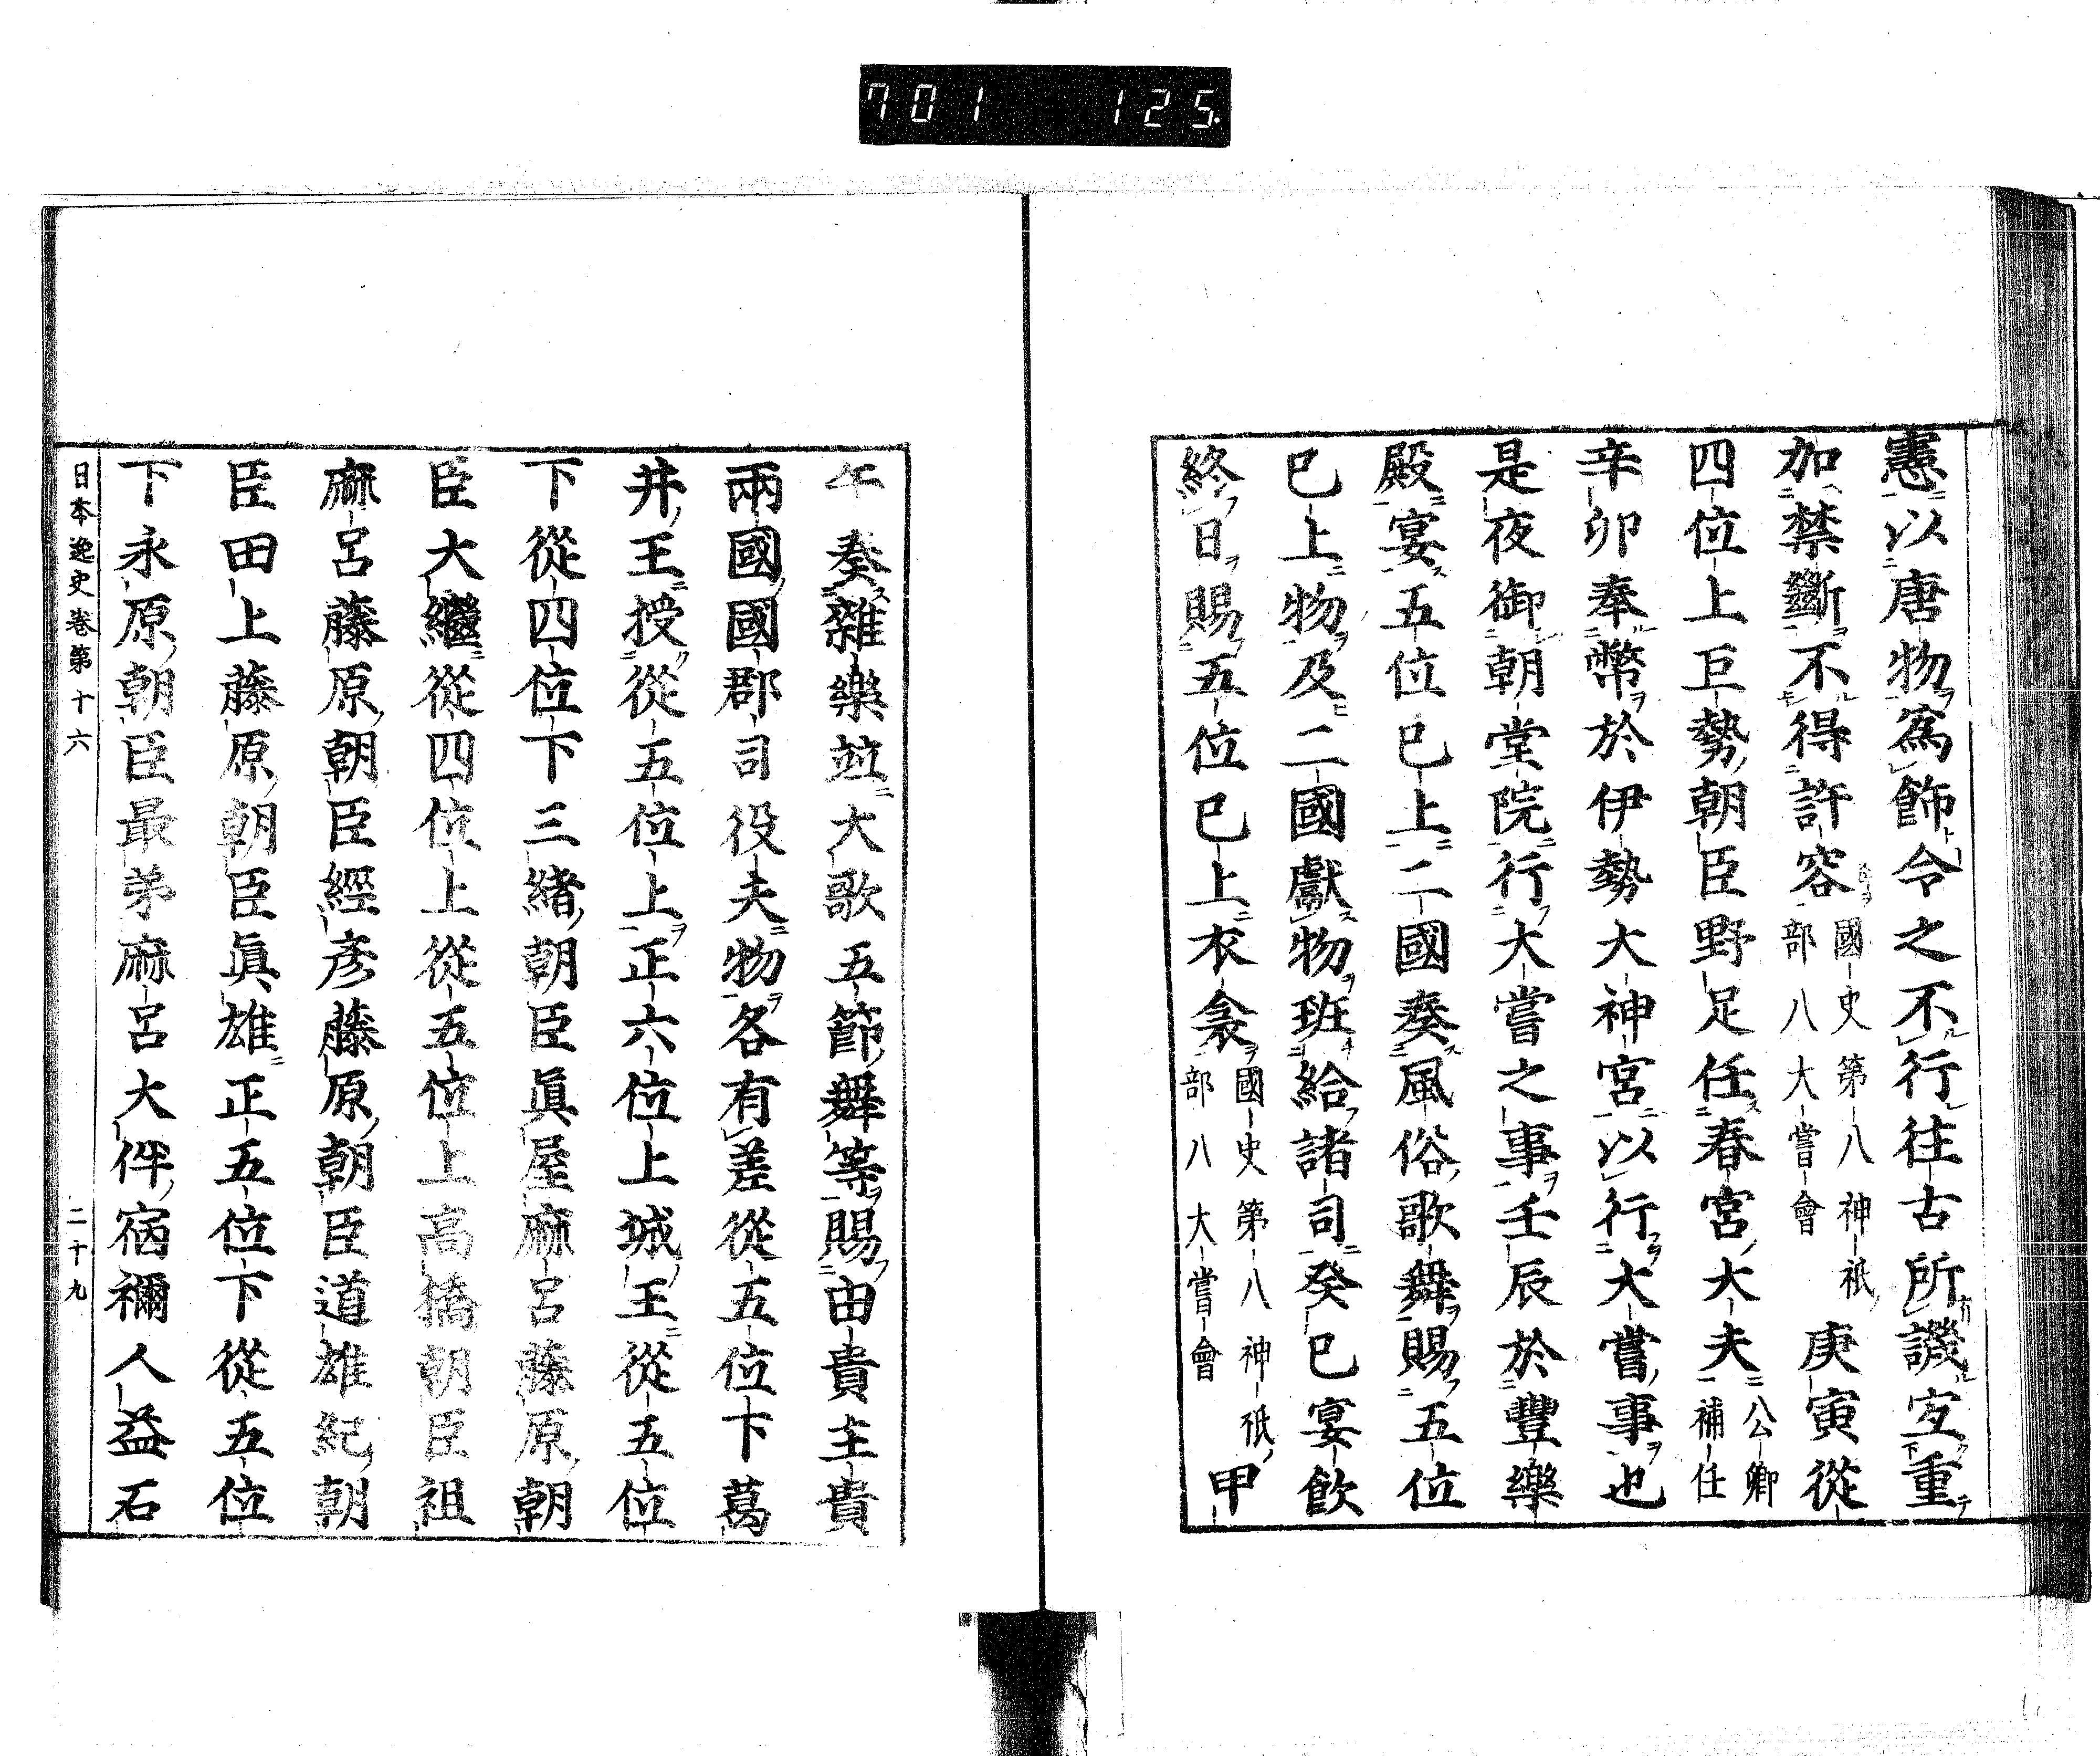 701 125
憲以唐物爲飾令之不行往古所譏宐重
加禁斷不得許容國史第八神祇部八大嘗會庚寅從
四位上巨勢朝臣野足任春宮大夫公卿補任
辛卯奉幣於伊勢大神宮以行大嘗事也
是夜御朝堂院行大嘗之事壬辰於豐樂
殿宴五位已上二國奏風俗歌舞賜五位
已上物及二國獻物班給諸司癸巳宴飲
終日賜五位已上衣衾國史第八神祇部八大嘗會甲
午奏雜樂竝大歌五節舞等賜由貴主貴
兩國國郡司役夫物各有差從五位下葛
井王授從五位上正六位上城王從五位
下從四位下三緒朝臣眞屋麻呂藤原朝
臣大繼從四位上從五位上高橋朝臣祖
麻呂藤原朝臣經彥藤原朝臣道雄紀朝
臣田上藤原朝臣眞雄正五位下從五位
下永原朝臣最弟麻呂大伴宿禰人益石
日本逸史卷第十六 二十九